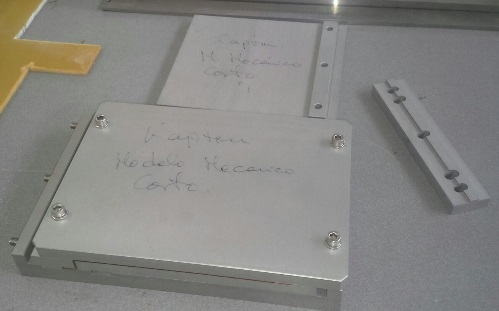 Capton
M. Mecánico
Corto
Kapton
Modelo Mecanico
Corto.